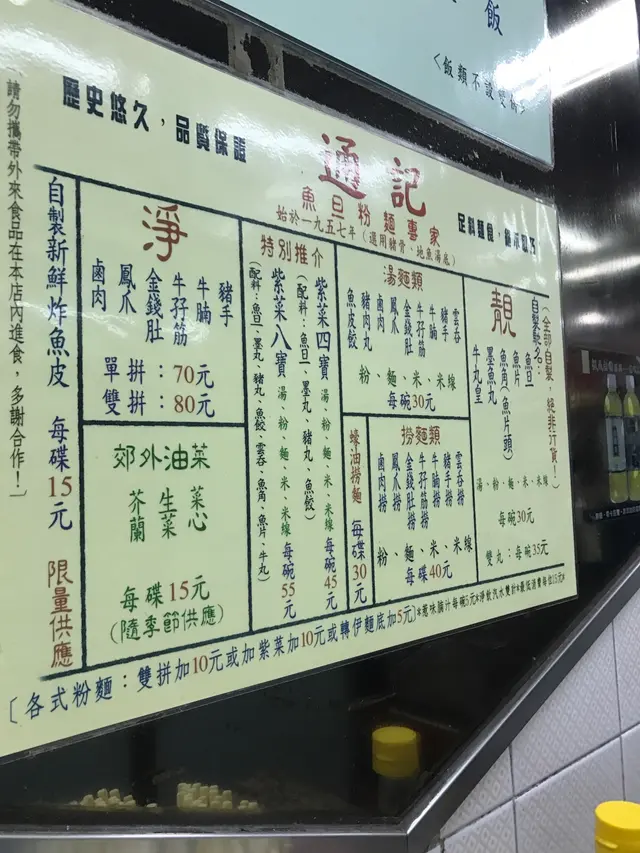 飯
<飯類不設雙
歷史悠久，品質保證
通記
魚旦粉麵專家
始於一九五七年（選用豬骨、地魚湯底）
請勿攜帶外來食品在本店內進食，多謝合作！
自製新鮮炸魚皮 每碟15元 限量供應
淨
豬手
牛腩
牛孖筋
金錢肚
鳳爪
鹵肉
單拼：70元
雙拼：80元
郊外油菜
菜心
生菜
芥蘭
每碟15元
(隨季節供應)
特別推介
紫菜四寶 湯、粉、麵、米、米線 每碗45元
（配料：魚旦、墨丸、豬丸、魚餃）
紫菜八寶 湯、粉、麵、米、米線 每碗55元
（配料：魚旦、墨丸、豬丸、魚餃、雲吞、魚角、魚片、牛丸）
湯麵類
雲吞
豬手
牛腩
牛孖筋
金錢肚
鳳爪
鹵肉
豬肉丸
魚皮餃
粉、麵、米、米線
每碗30元
蠔油撈麵 每碟30元
撈麵類
雲吞撈
豬手撈
牛腩撈
牛孖筋撈
金錢肚撈
鳳爪撈
鹵肉撈
粉、麵、米、米線
每碟40元
靚
（全部自製，絕非行貨！）
自製馳名：
魚旦
魚片
魚角（魚片頭）
墨魚丸
牛丸皇
湯、粉、麵、米、米線
每碗30元
雙丸：每碗35元
〔各式粉麵：雙拼加10元或加紫菜加10元或轉伊麵底加5元〕